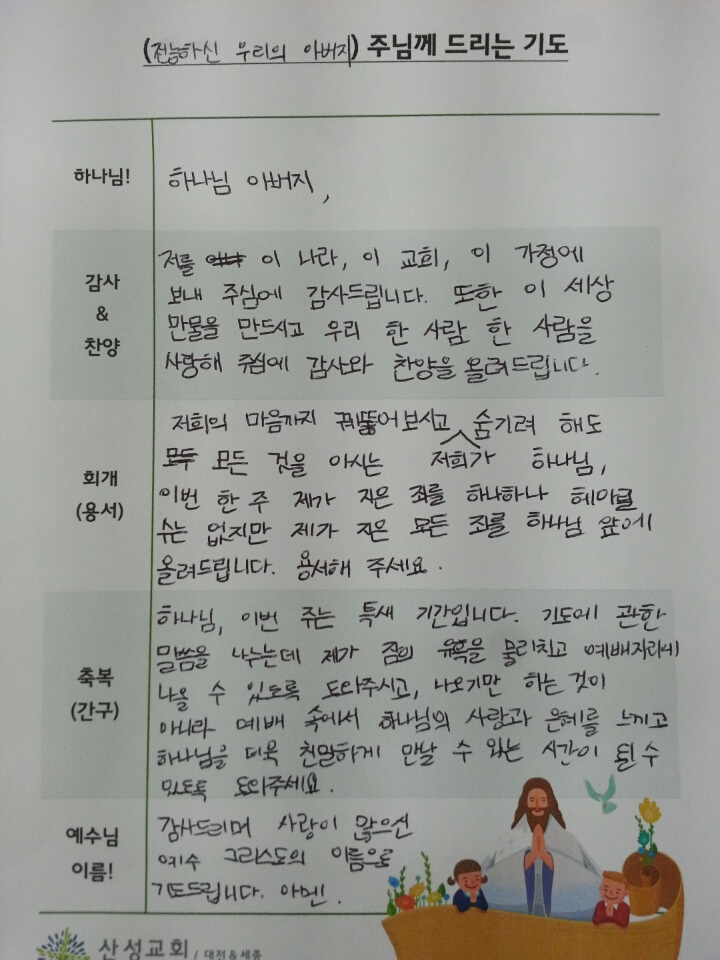 (전능하신 우리의 아버지) 주님께 드리는 기도
하나님!
하나님 아버지,
감사
&
찬양
저를 이 나라, 이 교회, 이 가정에
보내 주심에 감사드립니다. 또한 이 세상
만물을 만드시고 우리 한 사람 한 사람을
사랑해 주심에 감사와 찬양을 올려드립니다.
회개
(용서)
저희의 마음까지 꿰뚫어보시고 숨기려 해도
모두 모든 것을 아시는 저희가 하나님,
이번 한 주 제가 지은 죄를 하나하나 헤아릴
수는 없지만 제가 지은 모든 죄를 하나님 앞에
올려드립니다. 용서해 주세요.
축복
(간구)
하나님, 이번 주는 특새 기간입니다. 기도에 관한
말씀을 나누는데 제가 잠의 유혹을 물리치고 예배자리에
나올 수 있도록 도와주시고, 나오기만 하는 것이
아니라 예배 속에서 하나님의 사랑과 은혜를 느끼고
하나님을 더욱 친밀하게 만날 수 있는 시간이 될 수
있도록 도와주세요.
예수님
이름!
감사드리며 사랑이 많으신
예수 그리스도의 이름으로
기도드립니다. 아멘.
산성교회 / 대전&세종